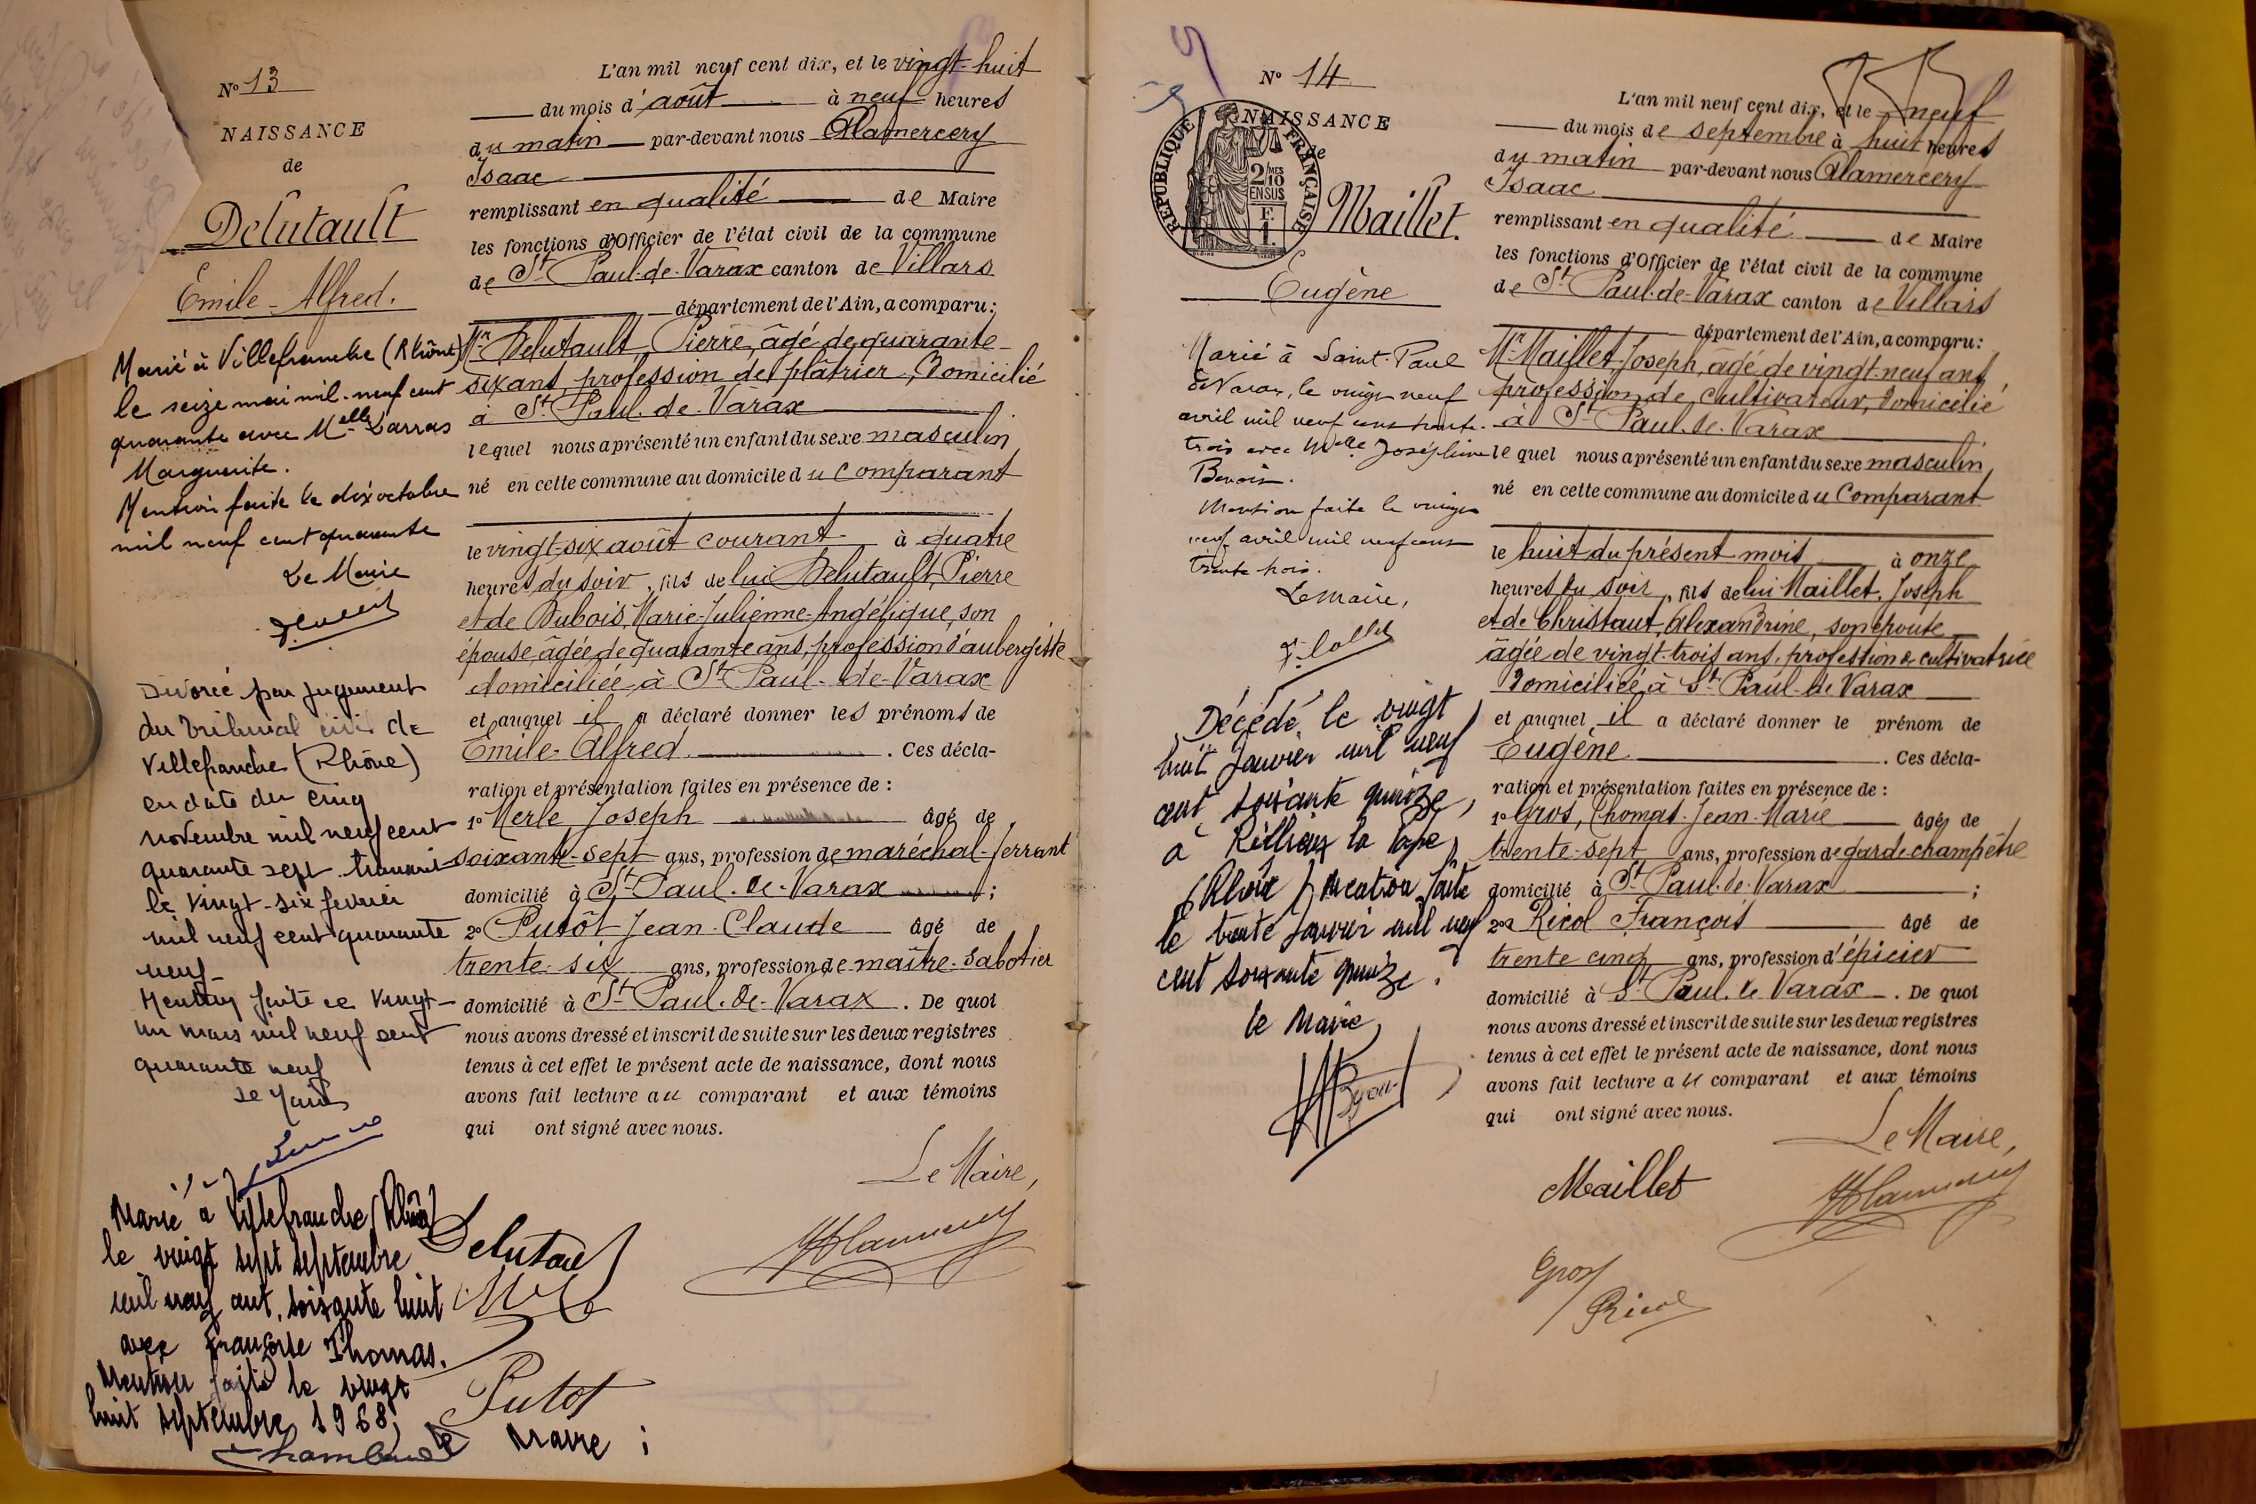 N° 13
NAISSANCE
de
Delutault
Emile-Alfred.
Marié à Villefranche (Rhône)
le seize mai mil-neuf cent
quarante avec Melle Larras
Marguerite.
Mention faite le dix octobre
mil neuf cent quarante
Le Maire
Divorcé par jugement
du Tribunal civil de
Villefranche (Rhône)
en date du cinq
novembre mil neuf cent
quarante sept transcrit
le vingt-six fevrier
mil neuf cent quarante
neuf-
Mention faite ce vingt-
un mars mil neuf cent
quarante neuf
Le Maire
Marié à Villefranche (Rhône)
le vingt sept septembre
mil neuf cent soixante huit
avec Françoise Thomas.
Mention faite le vingt
huit septembre 1968,
le Maire ;
L'an mil neuf cent dix, et le vingt-huit
du mois d'août à neuf heures
du matin par-devant nous Alamercery
Isaac
remplissant en qualité de Maire
les fonctions d'Officier de l'état civil de la commune
de St Paul-de-Varax canton de Villars
département de l'Ain, a comparu:
Mr Delutault Pierre, âgé de quarante
six ans, profession de plâtrier, Domicilié
à St Paul-de-Varax
lequel nous a présenté un enfant du sexe masculin
né en cette commune au domicile du comparant
le vingt-six août courant à quatre
heures du soir, fils de lui Delutault, Pierre
et de Dubois, Marie-Julienne-Angélique, son
épouse, âgée de quarante ans, profession d'aubergiste
domiciliée à St Paul-de-Varax
et auquel il a déclaré donner les prénoms de
Emile-Alfred. Ces décla-
ration et présentation faites en présence de :
1° Merle Joseph âgé de
soixante-sept ans, profession de maréchal-ferrant
domicilié à St Paul-de-Varax ;
2° Putôt Jean-Claude âgé de
trente-six ans, profession de maître-sabotier
domicilié à St Paul-de-Varax. De quoi
nous avons dressé et inscrit de suite sur les deux registres
tenus à cet effet le présent acte de naissance, dont nous
avons fait lecture au comparant et aux témoins
qui ont signé avec nous.
Le Maire,
Delutault
Putot
N° 14
NAISSANCE
de
RÉPUBLIQUE FRANÇAISE
2/10 MES
EN SUS
Maillet.
Eugène
Marié à Saint-Paul
de Varax, le vingt neuf
avril mil neuf cent trente-
trois avec Melle Joséphine
Benoit.
Mention faite le vingt
neuf avril mil neuf cent
trente trois.
Le Maire,
Décédé le vingt
huit Janvier mil neuf
cent soixante quinze,
à Rillieux la Pape,
(Rhône) mention faite
le trente Janvier mil neuf
cent soixante quinze.
le Maire,
L'an mil neuf cent dix, et le neuf
du mois de septembre à huit heures
du matin par-devant nous Alamercery
Isaac
remplissant en qualité de Maire
les fonctions d'Officier de l'état civil de la commune
de St Paul-de-Varax canton de Villars
département de l'Ain, a comparu:
Mr Maillet, Joseph, âgé de vingt-neuf ans,
profession de cultivateur, Domicilié
à St Paul-de-Varax
lequel nous a présenté un enfant du sexe masculin,
né en cette commune au domicile du Comparant
le huit du présent mois à onze
heures du soir, fils de lui Maillet, Joseph
et de Christaut, Alexandrine, son épouse,
âgée de vingt-trois ans, profession de cultivatrice
Domiciliée à St Paul-de-Varax
et auquel il a déclaré donner le prénom de
Eugène. Ces décla-
ration et présentation faites en présence de :
1° Gros, Thomas-Jean-Marie âgé de
trente-sept ans, profession de garde champêtre
domicilié à St Paul-de-Varax ;
2° Ricol François âgé de
trente cinq ans, profession d'épicier
domicilié à St Paul-de Varax. De quoi
nous avons dressé et inscrit de suite sur les deux registres
tenus à cet effet le présent acte de naissance, dont nous
avons fait lecture au comparant et aux témoins
qui ont signé avec nous.
Le Maire,
Maillet
Gros
Ricol